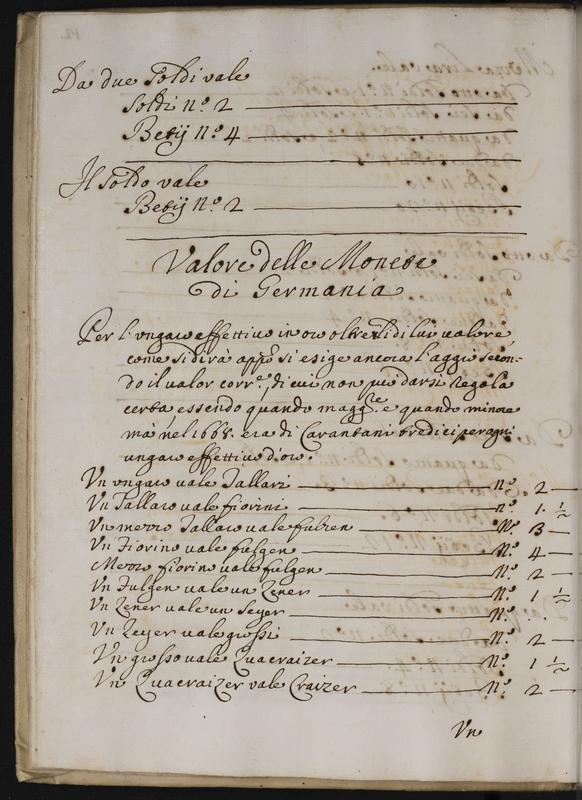 Da due soldi vale
Soldi n.º 2
Betij n.º 4
Il soldo vale
Betij n.º 2
Valore delle Monete
di Germania
Per l'ungaro effettivo in oro oltre il di lui valore,
come si dirà app.º si esige ancora l'aggio secon-
do il valor corr.e, di cui non può darsi regola
certa, essendo quando magg.re e quando minore
mà nel 1668. era di Carantani tredici per ogni
ungaro effettivo d'oro.
Un ungaro vale Tallari n.º 2
Un Tallaro vale fiorini n.º 1 ½
Un mezzo Tallaro vale fulzen N.º 3
Un Fiorino vale fulgen N.º 4
Mezzo fiorino vale fulgen N.º 2
Un Fulgen vale un Zener N.º 1 ½
Un Zener vale un Seyer N.º
Un Zeyer vale grossi N.º 2
Un grosso vale Quacraizer N.º 1 ½
Un Quacraizer vale Craizer N.º 2
Un